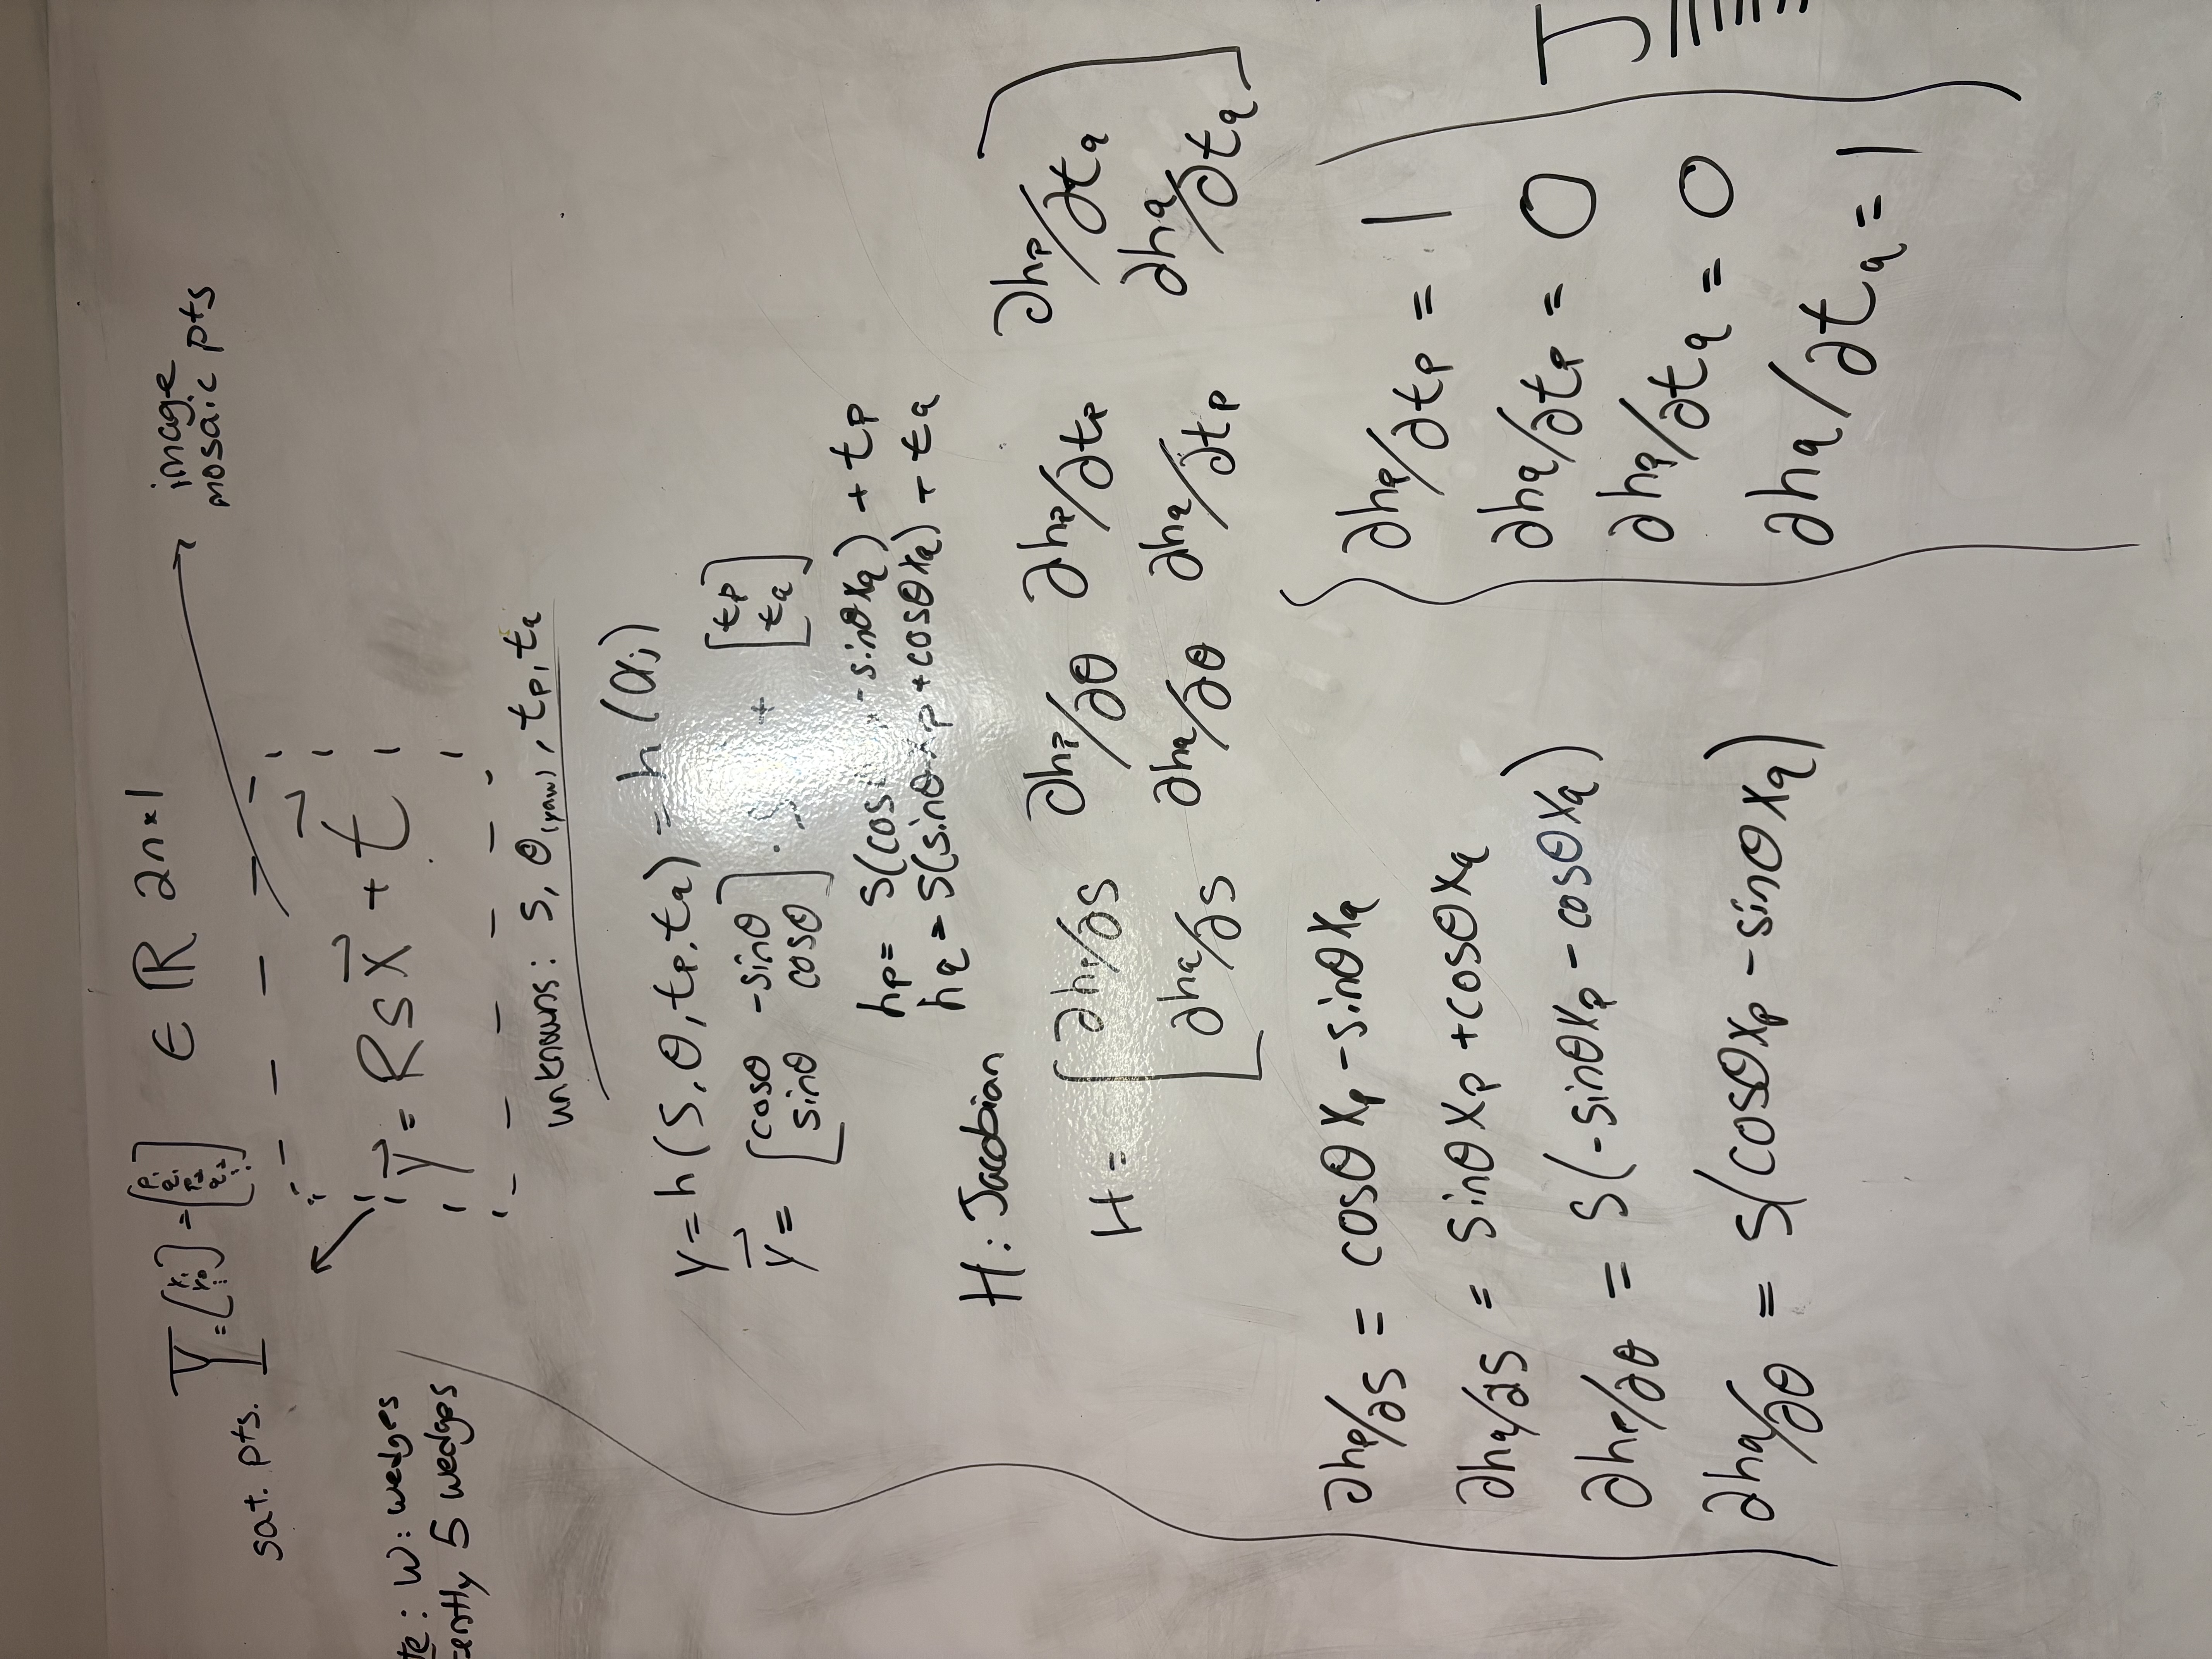 sat. pts. Y = [y₁ y₂ ⋮] = [p₁ q₁ p₂ q₂ ⋮] ∈ ℝ 2n×1
image
mosaic pts
te: W: wedges
ently 5 wedges
y⃗ = R s x⃗ + t⃗
unknowns: s, θ(yaw), tp, tq
y = h(s, θ, tp, tq) = h(αj)
y⃗ = [cosθ -sinθ; sinθ cosθ] · s + [tp; tq]
hp = s(cos - sinθ xq) + tp
hq = s(sinθ xp + cosθ xq) + tq
H: Jacobian
H = [∂hp/∂s ∂hp/∂θ ∂hp/∂tp ∂hp/∂tq
∂hq/∂s ∂hq/∂θ ∂hq/∂tp ∂hq/∂tq]
∂hp/∂s = cosθ xp - sinθ xq
∂hq/∂s = sinθ xp + cosθ xq
∂hp/∂θ = s(-sinθ xp - cosθ xq)
∂hq/∂θ = s(cosθ xp - sinθ xq)
∂hp/∂tp = 1
∂hq/∂tp = 0
∂hp/∂tq = 0
∂hq/∂tq = 1
J